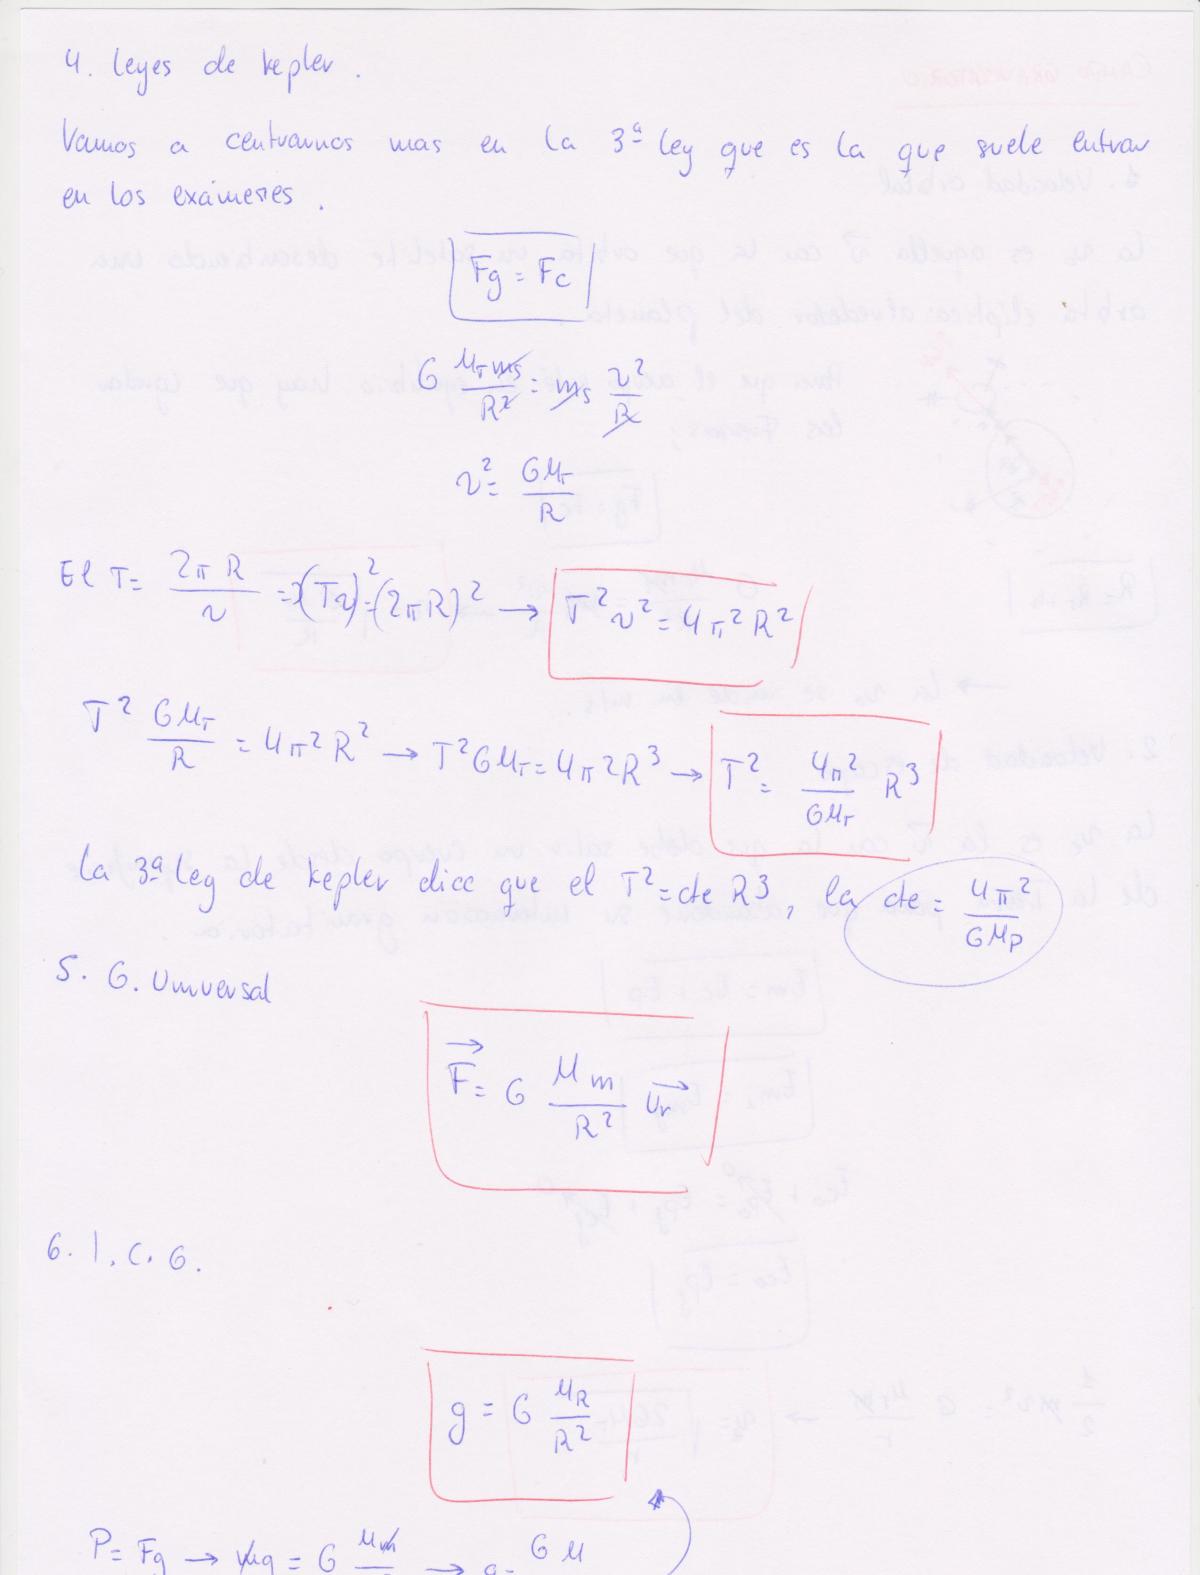 4. Leyes de kepler.
Vamos a centrarnos mas en la 3ª ley que es la que suele entrar
en los exámenes.
Fg = Fc
G MT ms / R² = ms v² / R
v² = GMT / R
El T = 2π R / v => (Tv)² = (2πR)² → T² v² = 4π² R²
T² GMT / R = 4π² R² → T² GMT = 4π² R³ → T² = 4π² / GMT R³
La 3ª ley de kepler dice que el T² = cte R³, la cte = 4π² / GMp
5. G. Universal
F⃗ = G M m / R² u⃗r
6. I. C. G.
g = G MR / R²
P = Fg → mg = G Mm → g = G M